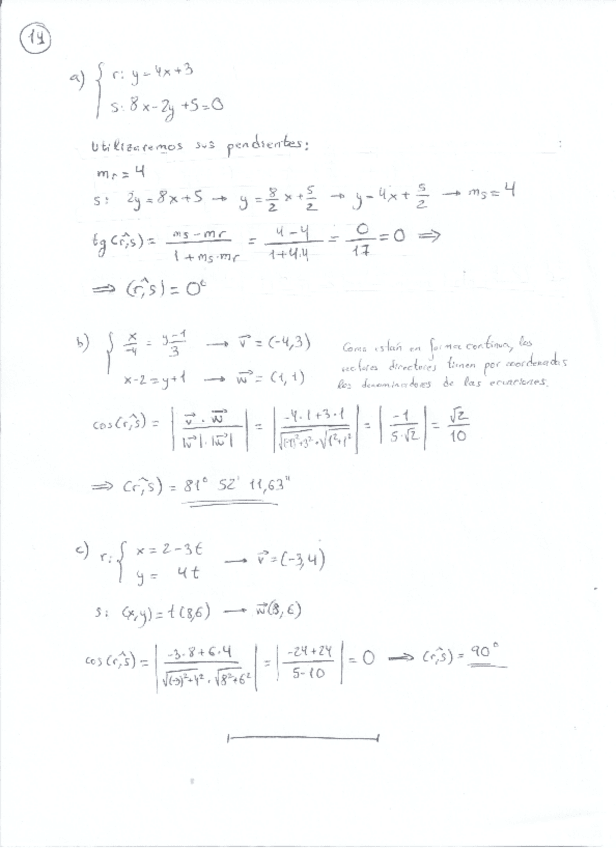 14
a) { r: y=4x+3
s: 8x-2y+5=0
Utilizaremos sus pendientes:
m_r = 4
s: 2y=8x+5 → y = 8/2 x + 5/2 → y=4x+5/2 → m_s = 4
tg(r,^s) = (m_s-m_r)/(1+m_s·m_r) = (4-4)/(1+4·4) = 0/17 = 0 ⟹
⟹ (r,^s) = 0°
b) { x/-4 = (y-1)/3 → v⃗ = (-4,3)
x-2=y+1 → w⃗ = (1,1)
Como están en forma continua, los
vectores directores tienen por coordenadas
los denominadores de las ecuaciones.
cos(r,^s) = | v⃗·w⃗ / |v⃗|·|w⃗| | = | (-4·1+3·1) / (√((-4)²+3²)·√(1²+1²)) | = | -1/(5·√2) | = √2/10
⟹ (r,^s) = 81° 52' 11,63"
c) r: { x = 2-3t
y = 4t → v⃗ = (-3,4)
s: (x,y)=t(8,6) → w⃗(8,6)
cos(r,^s) = | (-3·8+6·4) / (√((-3)²+4²)·√(8²+6²)) | = | (-24+24)/(5·10) | = 0 ⟹ (r,^s) = 90°